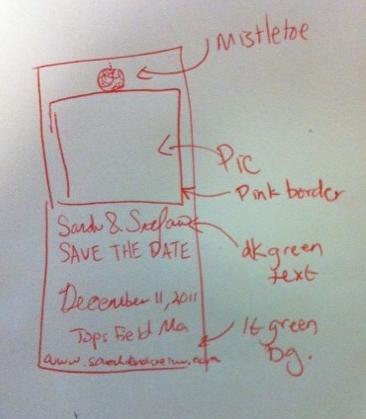 Mistletoe
Pic
Pink border
Sarah &
SAVE THE DATE
dk green
text
December 11, 2011
Topsfield Ma
lt green
bg.